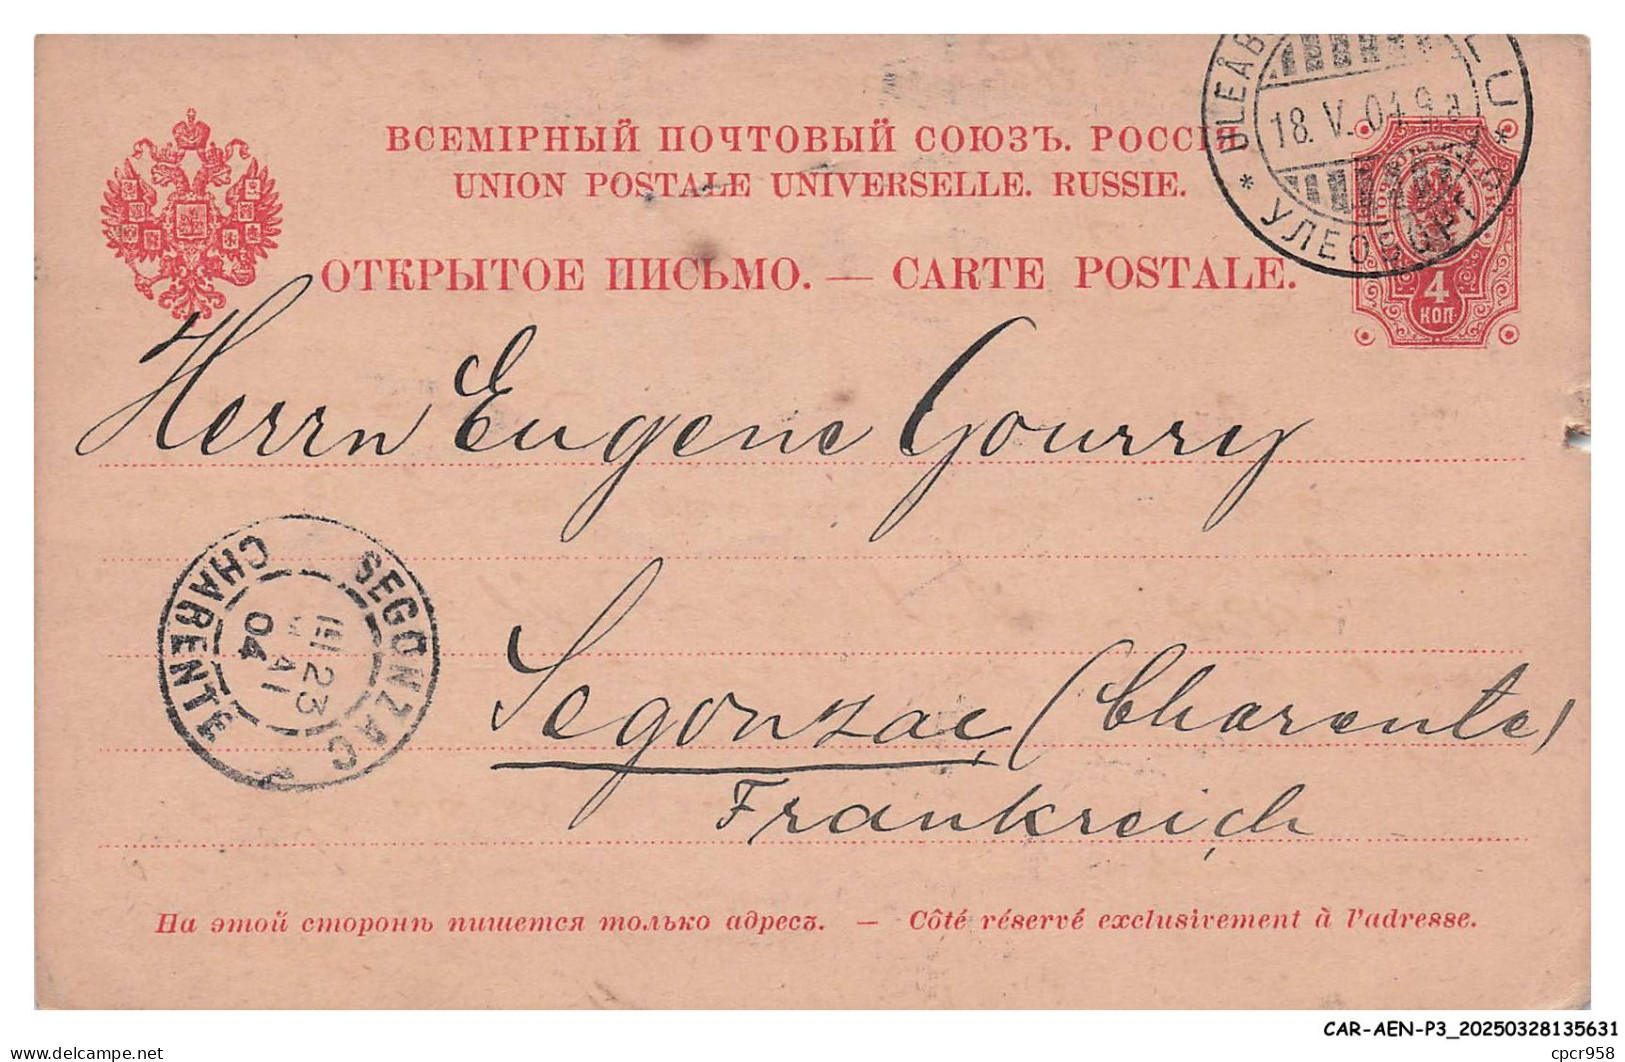 ВСЕМІРНЫЙ ПОЧТОВЫЙ СОЮЗЪ. РОССІЯ
UNION POSTALE UNIVERSELLE. RUSSIE.
ОТКРЫТОЕ ПИСЬМО. — CARTE POSTALE.
18. V. 04 9 a
* УЛЕОБОРГЪ *
4
КОП
Herrn Eugene Gourry
SEGONZAC
CHARENTE
23
MAI
04
Segonzac, (Charente)
Frankreich
На этой сторонѣ пишется только адресъ. — Côté réservé exclusivement à l'adresse.
CAR-AEN-P3_20250328135631
cpcr958